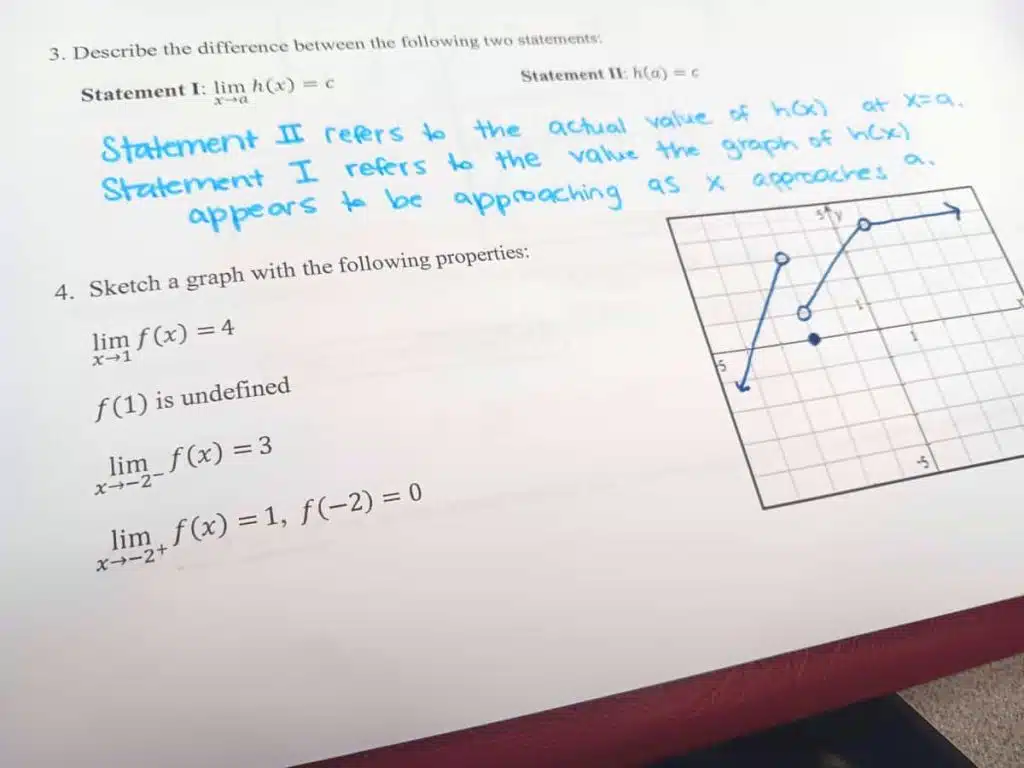 3. Describe the difference between the following two statements:
Statement I: lim h(x) = c Statement II: h(a) = c
x→a
Statement II refers to the actual value of h(x) at x=a.
Statement I refers to the value the graph of h(x)
appears to be approaching as x approaches a.
4. Sketch a graph with the following properties:
lim f(x) = 4
x→1
f(1) is undefined
lim f(x) = 3
x→-2⁻
lim f(x) = 1, f(-2) = 0
x→-2⁺
5 y
1
1
5
-5